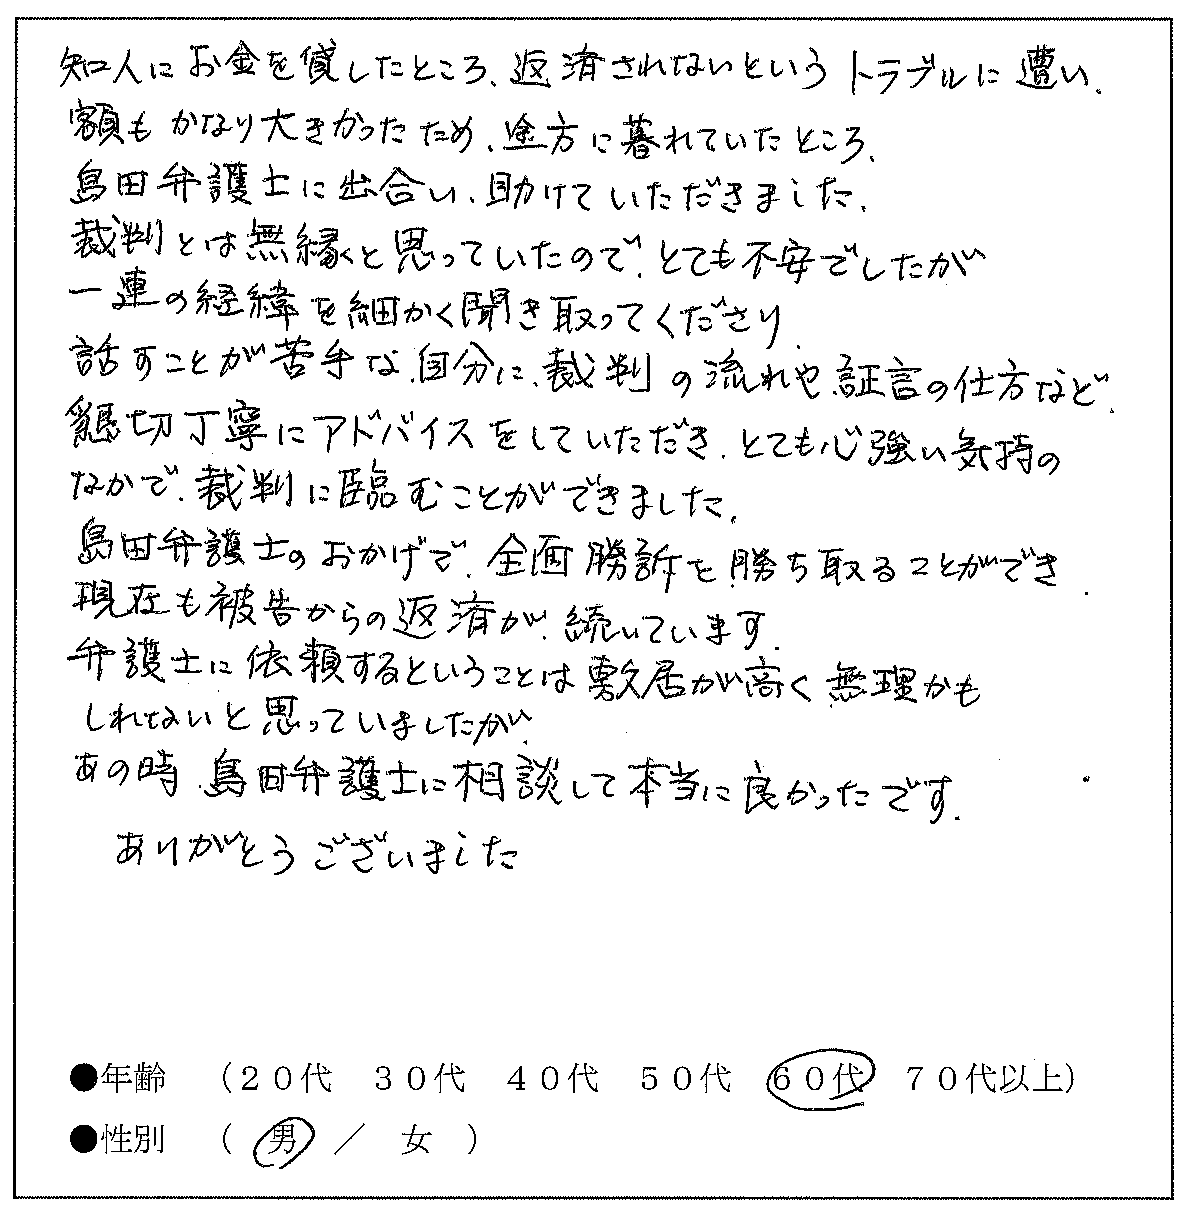 知人にお金を貸したところ、返済されないというトラブルに遭い、
額もかなり大きかったため、途方に暮れていたところ、
島田弁護士に出合い、助けていただきました。
裁判とは無縁と思っていたので、とても不安でしたが
一連の経緯を細かく聞き取ってくださり、
話すことが苦手な、自分に、裁判の流れや、証言の仕方など、
懇切丁寧にアドバイスをしていただき、とても心強い気持の
なかで、裁判に臨むことができました。
島田弁護士のおかげで、全面勝訴を勝ち取ることができ、
現在も被告からの返済が、続いています。
弁護士に依頼するということは敷居が高く無理かも
しれないと思っていましたが、
あの時、島田弁護士に相談して本当に良かったです。
ありがとうございました
●年齢 （20代 30代 40代 50代 60代 70代以上）
●性別 （ 男 ／ 女 ）